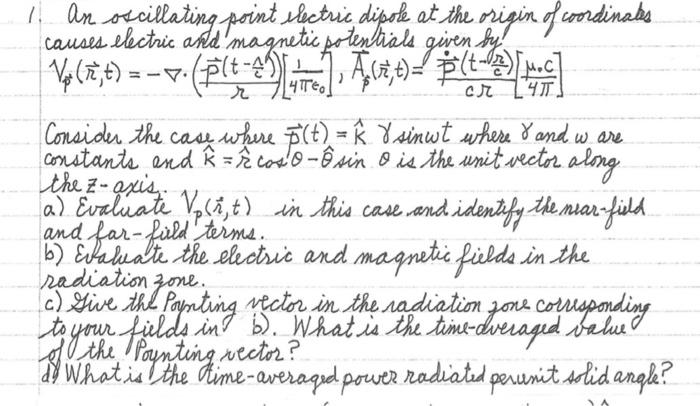 1. An oscillating point electric dipole at the origin of coordinates
causes electric and magnetic potentials given by
V_p(r⃗,t) = -∇·(p⃗(t-r/c)/r)[1/4πε₀], A⃗_p(r⃗,t) = ṗ⃗(t-r/c)/cr [μ₀c/4π]
Consider the case where p⃗(t) = k̂ γ sinωt where γ and ω are
constants and k̂ = r̂ cosθ - θ̂ sin θ is the unit vector along
the z-axis.
a) Evaluate V_p(r⃗,t) in this case and identify the near-field
and far-field terms.
b) Evaluate the electric and magnetic fields in the
radiation zone.
c) Give the Poynting vector in the radiation zone corresponding
to your fields in b). What is the time-averaged value
of the Poynting vector?
d) What is the time-averaged power radiated per unit solid angle?